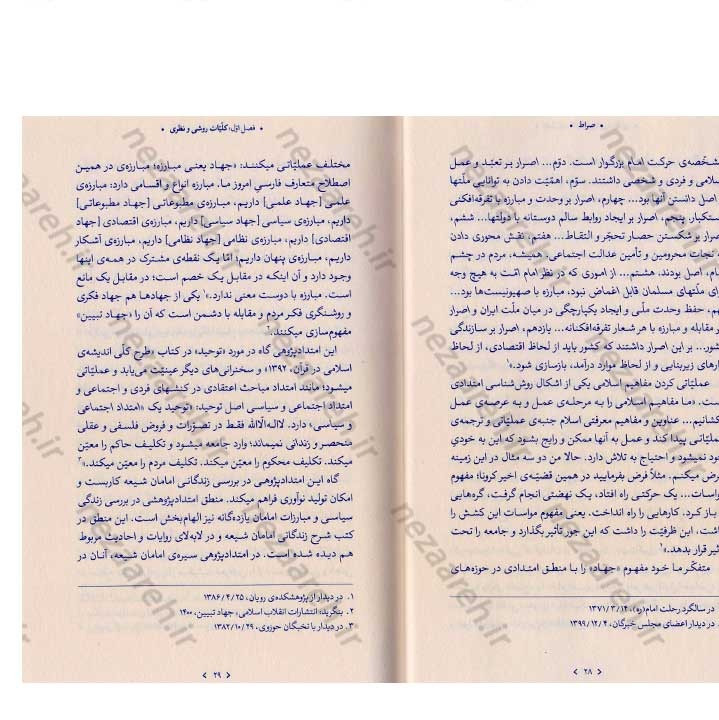 • صراط •
شخّصه‌ی حرکت امام بزرگوار است. دوّم... اصرار بر تعبّد و عمل
سلامی و فردی و شخصی داشتند. سوّم، اهمّیّت دادن به توانایی ملّتها
اصل دانستن آنها بود... چهارم، اصرار بر وحدت و مبارزه با تفرقه‌افکنی
ستکبار. پنجم، اصرار بر ایجاد روابط سالم دوستانه با دولتها... ششم،
صرار بر شکستن حصار تحجّر و التقاط... هفتم، نقش محوری دادن
ه نجات محرومین و تأمین عدالت اجتماعی. همیشه، مردم در چشم
ام، اصل بودند. هشتم... از اموری که در نظر امام امّت به هیچ وجه
رای ملّتهای مسلمان قابل اغماض نبود، مبارزه با صهیونیست‌ها بود...
هم، حفظ وحدت ملّی و ایجاد یکپارچگی در میان ملّت ایران و اصرار
مقابله و مبارزه با هر شعار تفرقه‌افکنانه... یازدهم، اصرار بر سازندگی
شور... بر این اصرار داشتند که کشور باید از لحاظ اقتصادی، از لحاظ
ارهای زیربنایی و از لحاظ موارد درآمد، بازسازی شود.»۱
عملیّاتی کردن مفاهیم اسلامی یکی از اشکال روش‌شناسی امتدادی
ست. «ما مفاهیم اسلامی را به مرحله‌ی عمل و به عرصه‌ی عمل
کشانیم... عناوین و مفاهیم معرفتی اسلام جنبه‌ی عملیّاتی و ترجمه‌ی
ملیّاتی پیدا کند و عمل به آنها ممکن و رایج بشود که این به خودیِ
خود نمیشود و احتیاج به تلاش دارد. حالا من دو سه مثال در این زمینه
رض میکنم. مثلاً فرض بفرمایید در همین قضیّه‌ی اخیر کرونا؛ مفهوم
واسات... یک حرکتی راه افتاد، یک نهضتی انجام گرفت، گره‌هایی
باز کرد، کارهایی را راه انداخت. یعنی مفهوم مواسات این کشش را
اشت، این ظرفیّت را داشت که این جور تأثیر بگذارد و جامعه را تحت
ثیر قرار بدهد.»۱
متفکّر ما خود مفهوم «جهاد» را با منطق امتدادی در حوزه‌های
در سالگرد رحلت امام(ره)، ۱۳۷۱/۳/۱۴
. در دیدار اعضای مجلس خبرگان، ۱۳۹۹/۱۲/۴
۲۸
• فصل اوّل: کلّیّات روشی و نظری •
مختلف عملیّاتی میکنند: «جهاد یعنی مبارزه؛ مبارزه‌ی در همین
اصطلاح متعارف فارسیِ امروز ما. مبارزه انواع و اقسامی دارد: مبارزه‌ی
علمی [جهاد علمی] داریم، مبارزه‌ی مطبوعاتی [جهاد مطبوعاتی]
داریم، مبارزه‌ی سیاسی [جهاد سیاسی] داریم، مبارزه‌ی اقتصادی [جهاد
اقتصادی] داریم، مبارزه‌ی نظامی [جهاد نظامی] داریم، مبارزه‌ی آشکار
داریم، مبارزه‌ی پنهان داریم؛ امّا یک نقطه‌ی مشترک در همه‌ی اینها
وجود دارد و آن اینکه در مقابل یک خصم است؛ در مقابل یک مانع
است. مبارزه با دوست معنی ندارد.»۱ یکی از جهادها هم جهاد فکری
و روشنگری فکر مردم و مقابله با دشمن است که آن را «جهاد تبیین»
مفهوم‌سازی میکنند.۲
این امتدادپژوهی گاه در مورد «توحید» در کتاب «طرح کلّی اندیشه‌ی
اسلامی در قرآن، ۱۳۹۲» و سخنرانی‌های دیگر عینیّت می‌یابد و عملیّاتی
میشود؛ مانند امتداد مباحث اعتقادی در کنشهای فردی و اجتماعی و
امتداد اجتماعی و سیاسی اصل توحید: «توحید یک «امتداد اجتماعی
و سیاسی» دارد. لااله‌الّاالله فقط در تصوّرات و فروض فلسفی و عقلی
منحصر و زندانی نمیماند؛ وارد جامعه میشود و تکلیف حاکم را معیّن
میکند، تکلیف محکوم را معیّن میکند، تکلیف مردم را معیّن میکند.»۳
گاه این امتدادپژوهی در بررسی زندگانی امامان شیعه کاربست و
امکان تولید نوآوری فراهم میکند. منطق امتدادپژوهشی در بررسی زندگی
سیاسی و مبارزات امامان یازده‌گانه نیز الهام‌بخش است. این منطق در
کتب شرح زندگانی امامان شیعه و در لابه‌لای روایات و احادیث مربوط
هم دیده شده است. در امتدادپژوهی سیره‌ی امامان شیعه، آنان در
۱. در دیدار از پژوهشکده‌ی رویان، ۱۳۸۶/۴/۲۵
۲. بنگرید: انتشارات انقلاب اسلامی، جهاد تبیین، ۱۴۰۰
۳. در دیدار با نخبگان حوزوی، ۱۳۸۲/۱۰/۲۹
۲۹
nezaareh.ir